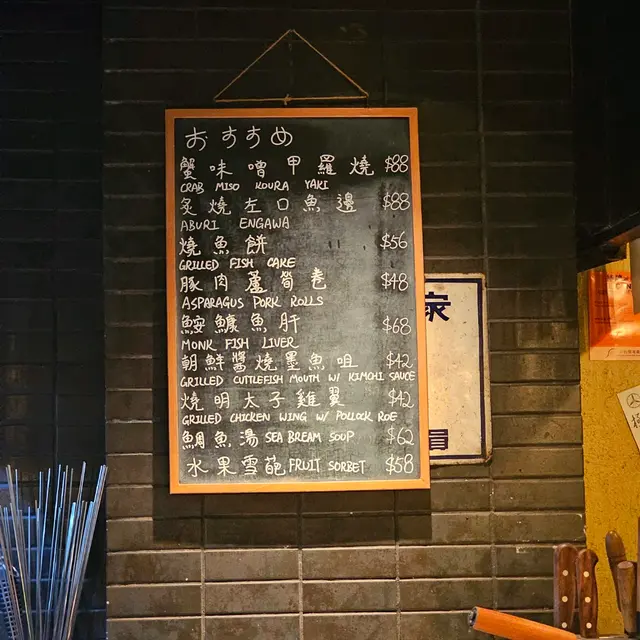 おすすめ
蟹味噌甲羅燒 $88
CRAB MISO KOURA YAKI
炙燒左口魚邊 $88
ABURI ENGAWA
燒魚餅 $56
GRILLED FISH CAKE
豚肉蘆筍卷 $48
ASPARAGUS PORK ROLLS
鮟鱇魚肝 $68
MONK FISH LIVER
朝鮮醬燒墨魚咀 $42
GRILLED CUTTLEFISH MOUTH W/ KIMCHI SAUCE
燒明太子雞翼 $42
GRILLED CHICKEN WING W/ POLLOCK ROE
鯛魚湯 SEA BREAM SOUP $62
水果雪葩 FRUIT SORBET $58
家
員